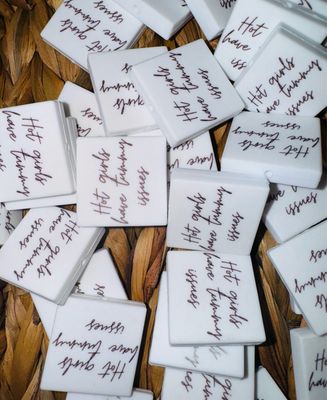 Hot girls
have tummy
issues
Hot girls
have tummy
issues
Hot girls
have tummy
issues
Hot girls
have tummy
issues
Hot girls
have tummy
issues
Hot girls
have tummy
issues
Hot girls
have tummy
issues
Hot girls
have tummy
issues
Hot girls
have tummy
issues
Hot girls
have tummy
issues
Hot girls
have tummy
issues
Hot girls
have tummy
issues